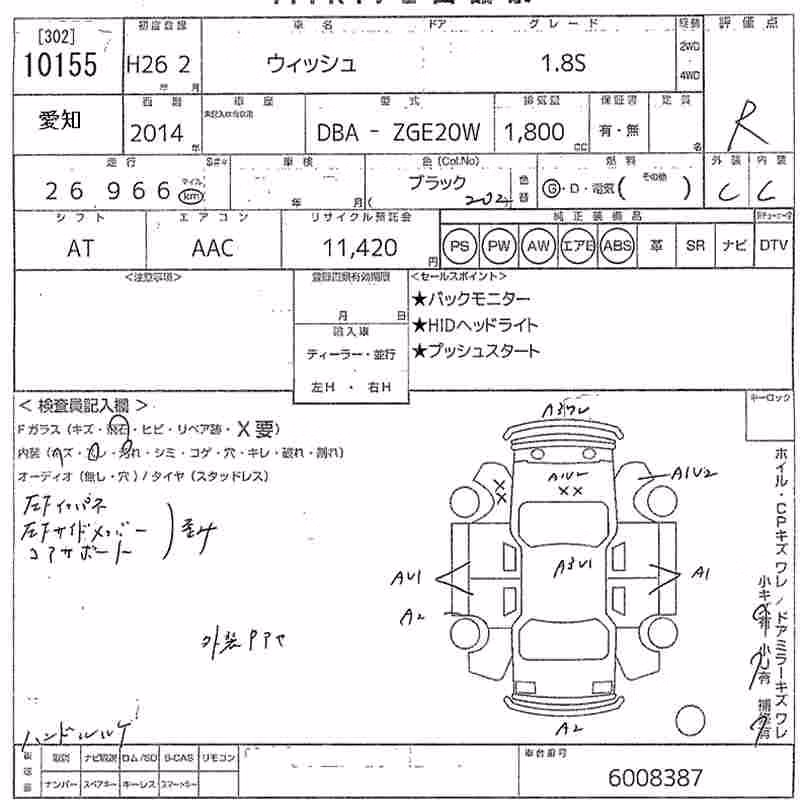 [302]
10155
初度登録
H26 2
年 月
車名
ウィッシュ
ドア
グレード
1.8S
2WD
4WD
評価点
R
愛知
西暦
2014
年
車歴
型式
DBA - ZGE20W
排気量
1,800
CC
保証書
有・無
定員
名
外装 内装
C C
走行
26966
マイル
km
車検
年 月
色(Col.No)
ブラック
202
色替
燃料
G・D・電気( その他 )
シフト
AT
エアコン
AAC
リサイクル預託金
11,420
円
純正装備品
PS PW AW エアB ABS 革 SR ナビ DTV
<注意事項>
登録書類有効期限
月 日
輸入車
ディーラー・並行
左H ・ 右H
<セールスポイント>
★バックモニター
★HIDヘッドライト
★プッシュスタート
キーロック
<検査員記入欄>
Fガラス(キズ・飛石・ヒビ・リペア跡・X要)
内装(キズ・スレ・汚れ・シミ・コゲ・穴・キレ・破れ・割れ)
オーディオ(無し・穴)/タイヤ(スタッドレス)
左Fインパネ
左Fサイドメンバー
コアサポート
外装Pアセ
A1U2
XX
A1U2
A3U1
AU1
A1
A2
A2
ホイル・CPキズワレ/ドアミラーキズワレ
ハンドルスレ
取説 ナビ取説 ロム/SD B-CAS リモコン
ナンバー スペアキー キーレス スマートキー
車台番号
6008387